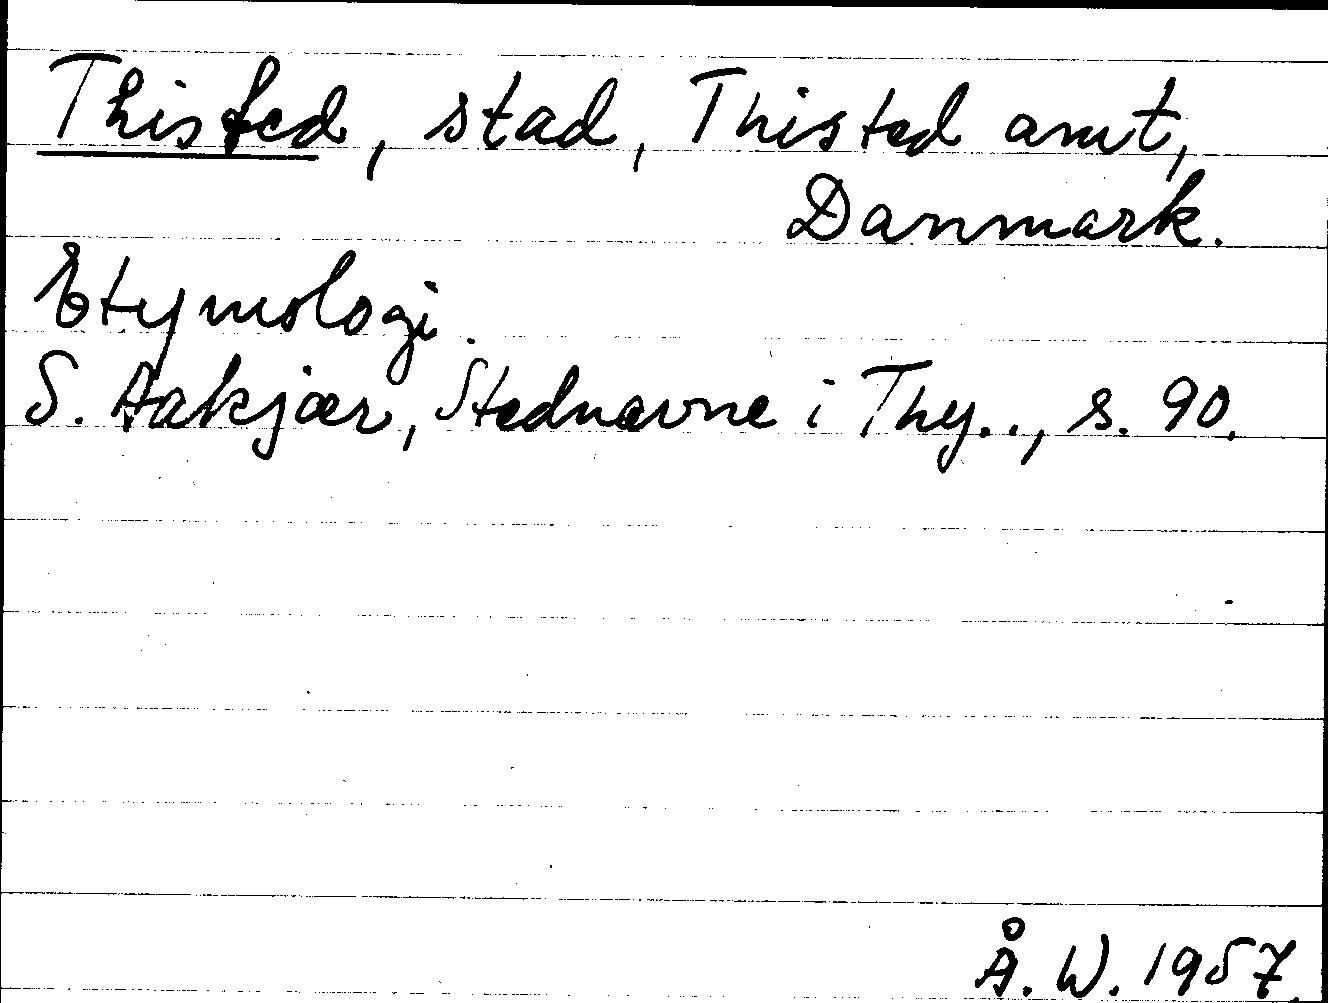 Thisted, stad, Thisted amt,
Danmark.
Etymologi.
S. Aakjær, Stednavne i Thy.., s. 90.
Å. W. 1957.